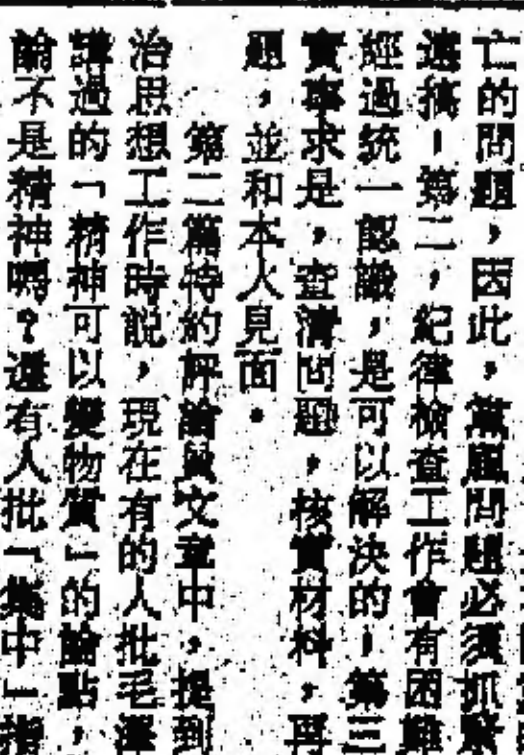 亡的問題，因此，黨風問題必須抓緊
邊搞！第二，紀律檢查工作會有困難
經過統一認識，是可以解決的！第三
實事求是，查清問題，核實材料，再
題，並和本人見面。
第二篇特約評論員文章中，提到
治思想工作時說，現在有的人批毛澤
講過的「精神可以變物質」的論點，
論不是精神嗎？還有人批「集中」指